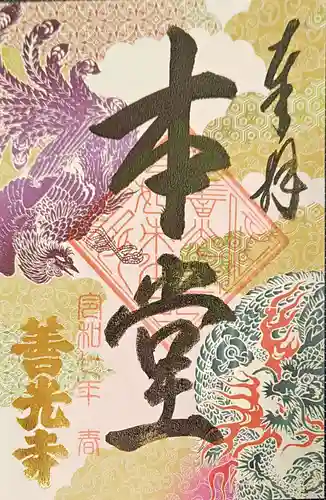 奉拝
本堂
和 年 春
善光寺